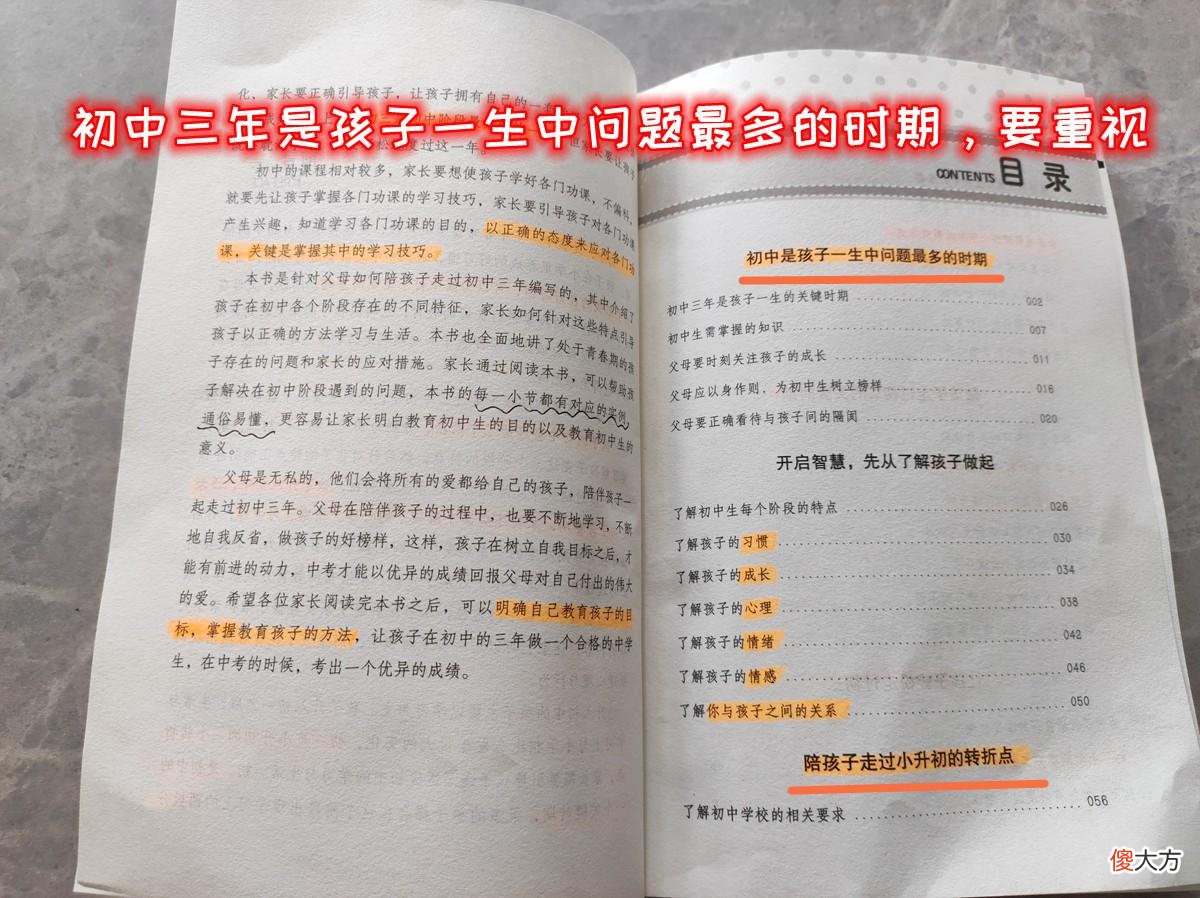 初中三年是孩子一生中问题最多的时期，要重视
化，家长要正确引导孩子，让孩子拥有自己的一套
初中的课程相对较多，家长要想使孩子学好各门功课，不偏科，
就要先让孩子掌握各门功课的学习技巧，家长要引导孩子对各门功课
产生兴趣，知道学习各门功课的目的，以正确的态度来应对各门功
课，关键是掌握其中的学习技巧。
本书是针对父母如何陪孩子走过初中三年编写的，其中介绍了
孩子在初中各个阶段存在的不同特征，家长如何针对这些特点引导
孩子以正确的方法学习与生活。本书也全面地讲了处于青春期的孩
子存在的问题和家长的应对措施。家长通过阅读本书，可以帮助孩
子解决在初中阶段遇到的问题，本书的每一小节都有对应的实例，
通俗易懂，更容易让家长明白教育初中生的目的以及教育初中生的
意义。
父母是无私的，他们会将所有的爱都给自己的孩子，陪伴孩子一
起走过初中三年。父母在陪伴孩子的过程中，也要不断地学习，不断
地自我反省，做孩子的好榜样，这样，孩子在树立自我目标之后，才
能有前进的动力，中考才能以优异的成绩回报父母对自己付出的伟大
的爱。希望各位家长阅读完本书之后，可以明确自己教育孩子的目
标，掌握教育孩子的方法，让孩子在初中的三年做一个合格的中学
生，在中考的时候，考出一个优异的成绩。
CONTENTS 目录
初中是孩子一生中问题最多的时期
初中三年是孩子一生的关键时期 002
初中生需掌握的知识 007
父母要时刻关注孩子的成长 011
父母应以身作则，为初中生树立榜样 016
父母要正确看待与孩子间的隔阂 020
开启智慧，先从了解孩子做起
了解初中生每个阶段的特点 026
了解孩子的习惯 030
了解孩子的成长 034
了解孩子的心理 038
了解孩子的情绪 042
了解孩子的情感 046
了解你与孩子之间的关系 050
陪孩子走过小升初的转折点
了解初中学校的相关要求 056
傻大方